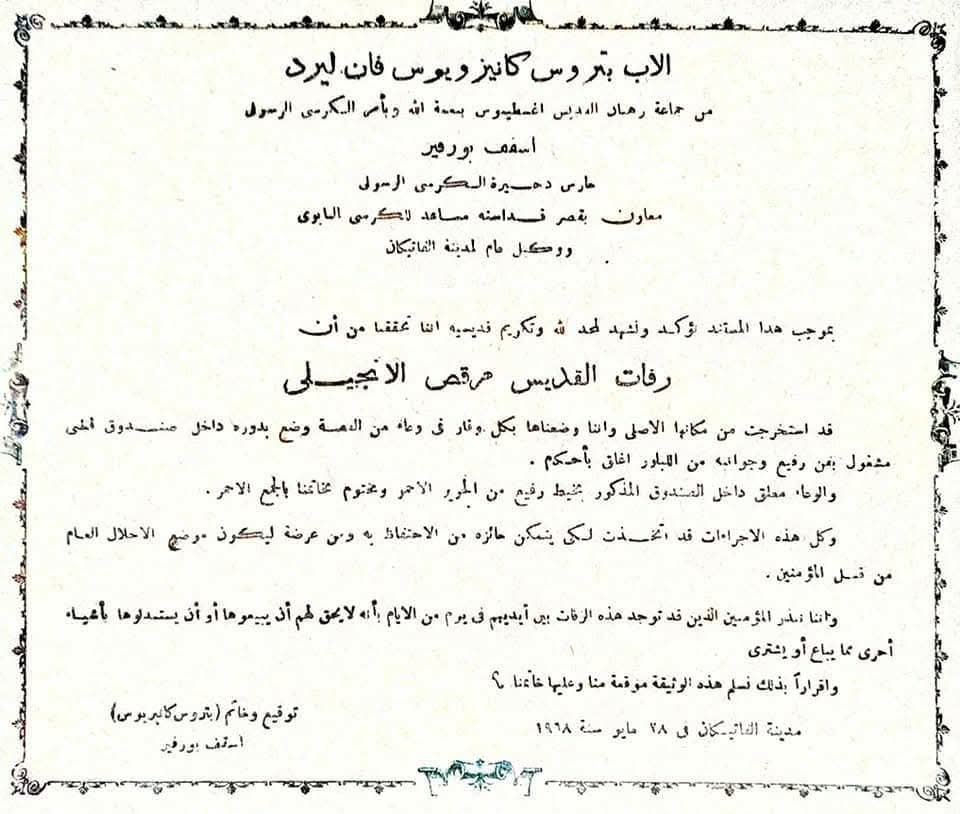 الاب بتروس كانيزويوس فان ليرد
من جماعة رهبان القديس اغسطينوس بنعمة الله وبأمر الكرسى الرسولى
اسقف بورفير
حارس ذخيرة الكرسى الرسولى
معاون بقصر قداسته مساعد للكرسى البابوى
ووكيل عام لمدينة الفاتيكان
بموجب هذا المستند نؤكد ونشهد لمجد لله وتكريم قديسيه اننا تحققنا من أن
رفات القديس مرقص الانجيلى
قد استخرجت من مكانها الاصلى واننا وضعناها بكل وقار فى وعاء من الفضة وضع بدوره داخل صندوق
مشغول بفن رفيع وجوانبه من البللور اغلق بأحكام .
والوعاء معلق داخل الصندوق المذكور بخيط رفيع من الحرير الاحمر ومختوم بخاتمنا بالجمع الاحمر .
وكل هذه الاجراءات قد اتخذت لكى يتمكن حائزه من الاحتفاظ به ومن عرضة ليكون موضع الاجلال العام
من قبل المؤمنين .
واننا ننذر المؤمنين الذين قد توجد هذه الرفات بين أيديهم فى يوم من الايام بأنه لا يحق لهم أن يبيعوها أو أن يستبدلوها بأشياء
أخرى مما يباع أو يشترى
واقراراً بذلك نسلم هذه الوثيقة موقعة منا وعليها خاتمنا ؟
مدينة الفاتيكان فى ٢٨ مايو سنة ١٩٦٨
توقيع وخاتم (بتروس كانيزيوس)
اسقف بورفير